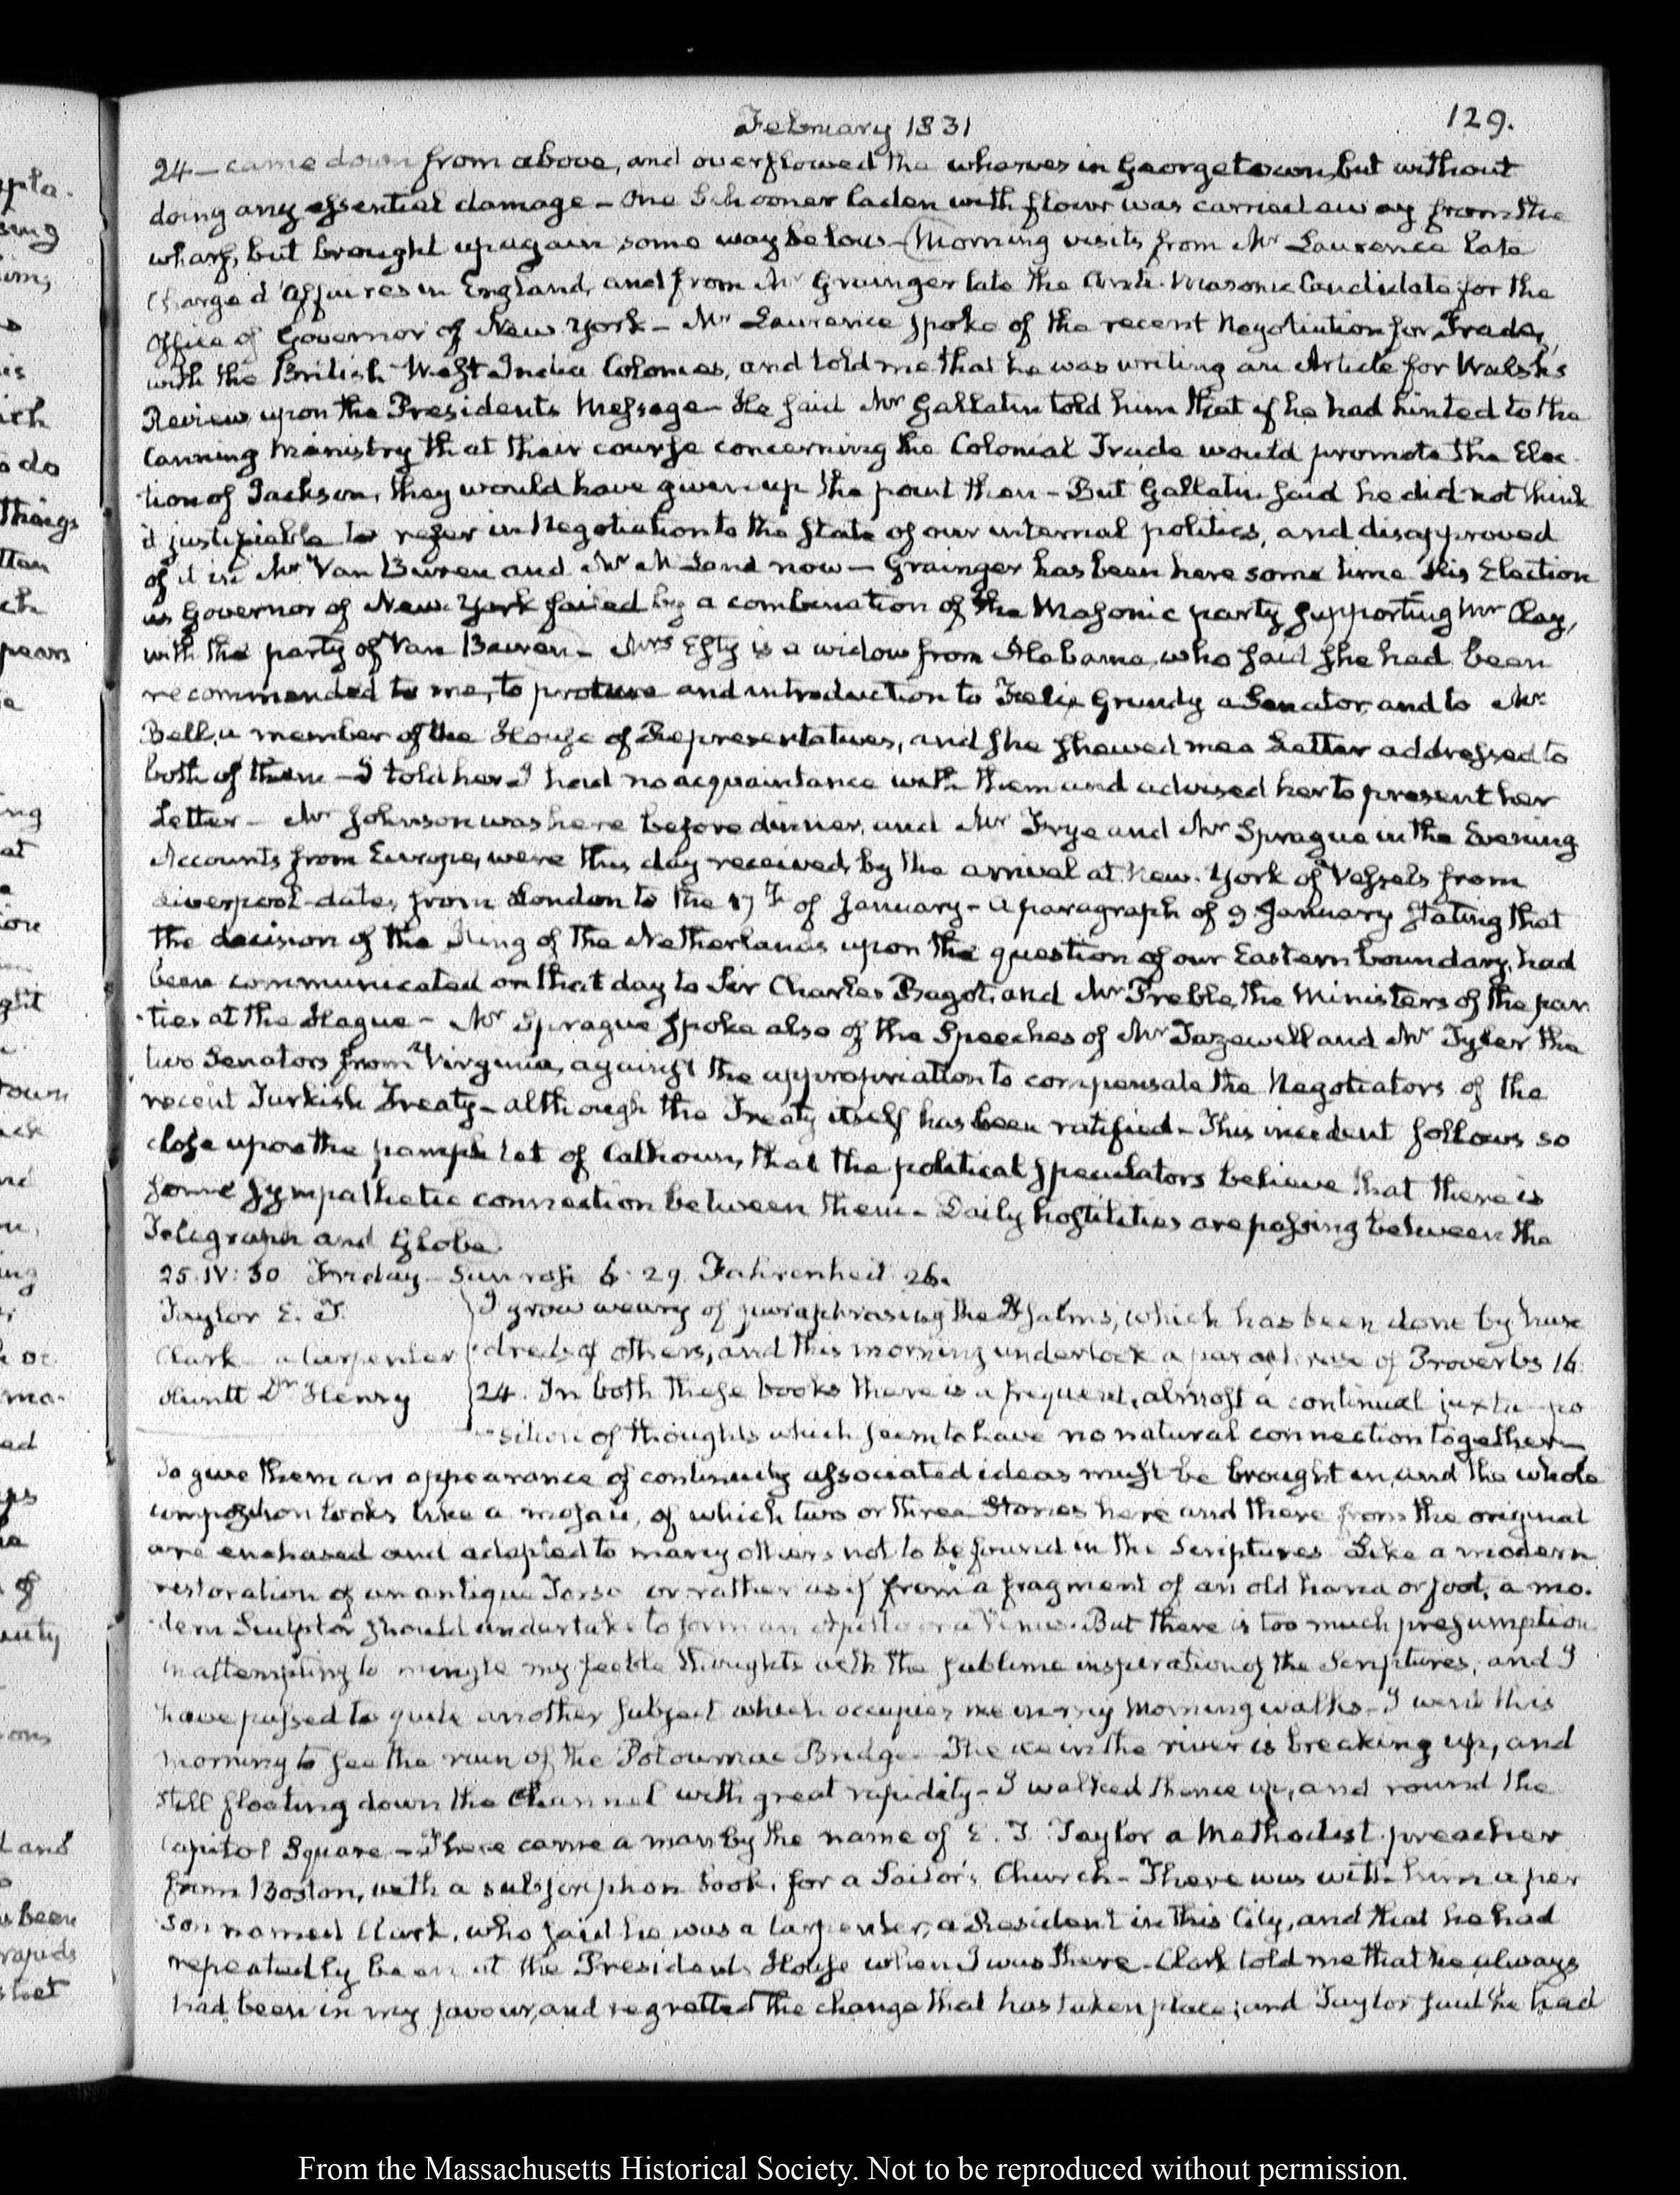 February 1831
129.
24 — came down from above, and overflowed the wharves in Georgetown, but without
doing any essential damage — One Schooner laden with flour was carried away from the
wharf, but brought up again some way below — Morning visits from Mr Lawrence late
Charge d'Affaires in England, and from Mr Grainger late the Anti-Masonic Candidate for the
Office of Governor of New-York — Mr Lawrence spoke of the recent Negotiation for Trade,
with the British West India Colonies, and told me that he was writing an Article for Walsh's
Review, upon the Presidents Message — He said Mr Gallatin told him that if he had hinted to the
Canning Ministry that their course concerning the Colonial Trade would promote the Elec-
-tion of Jackson, they would have given up the point then — But Gallatin said he did not think
it justifiable to refer in Negotiation to the state of our internal politics, and disapproved
of it in Mr Van Buren and Mr McLane now — Grainger has been here some time His Election
as Governor of New-York failed by a combination of the Masonic party supporting Mr Clay,
with the party of Van Buren — Mrs Esty is a widow from Alabama, who said she had been
recommended to me, to procure and introduction to Felix Grundy a Senator, and to Mr
Bell, a member of the House of Representatives, and she shewed me a Letter addressed to
both of them — I told her I had no acquaintance with them and advised her to present her
Letter — Mr Johnson was here before dinner, and Mr Frye and Mr Sprague in the Evening
Accounts from Europe, were this day received, by the arrival at New-York of Vessels from
Liverpool — dates from London to the 17th of January — a paragraph of 9 January stating that
the decision of the King of the Netherlands upon the question of our Eastern boundary, had
been communicated on that day to Sir Charles Bagot, and Mr Preble, the Ministers of the par-
-ties at the Hague — Mr Sprague spoke also of the Speeches of Mr Tazewell and Mr Tyler the
two Senators from Virginia, against the appropriation to compensate the Negotiators of the
recent Turkish Treaty — although the Treaty itself has been ratified — This incident follows so
close upon the pamphlet of Calhoun, that the political speculators believe that there is
some sympathetic connection between them — Daily hostilities are passing between the
Telegraph and Globe.
25. IV:30 Friday — Sun rose 6:29. Fahrenheit 26.
Taylor E. T.
Clark a Carpenter
Huntt Dr Henry
I grow weary of paraphrasing the Psalms, which has been done by hun-
-dreds of others, and this morning undertook a paraphrase of Proverbs 16:
24. In both these books there is a frequent, almost a continual juxta-po-
-sition of thoughts which seem to have no natural connection together —
To give them an appearance of continuity associated ideas must be brought in, and the whole
composition looks like a mosaic, of which two or three Stones here and there from the original
are enchased and adapted to many others not to be found in the Scriptures Like a modern
restoration of an antique Torso or rather as if from a fragment of an old hand or foot, a mo-
-dern Sculptor should undertake to form an Apollo or a Venus. But there is too much presumption
in attempting to mingle my feeble thoughts with the sublime inspiration of the Scriptures, and I
have passed to quite another subject which occupies me in my morning walks — I went this
morning to see the ruin of the Potowmac Bridge — The ice in the river is breaking up, and
still floating down the Channel with great rapidity — I walked thence up, and round the
Capitol Square — There came a man by the name of E. T. Taylor a Methodist preacher
from Boston, with a subscription book, for a Sailor's Church — There was with him a per-
-son named Clark, who said he was a Carpenter, a Resident in this City, and that he had
repeatedly been at the Presidents House when I was there — Clark told me that he always
had been in my favour, and regretted the change that has taken place; and Taylor said he had
From the Massachusetts Historical Society. Not to be reproduced without permission.